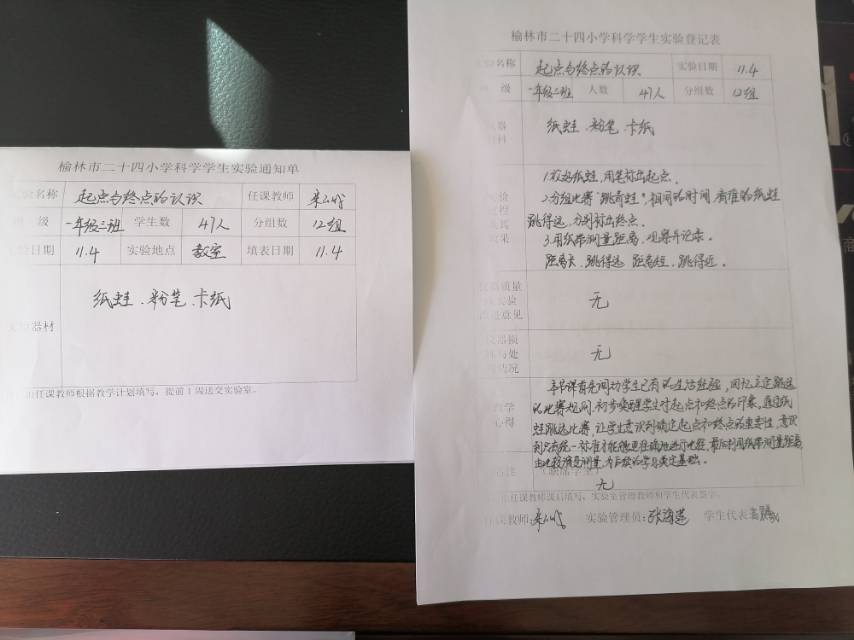 榆林市二十四小学科学学生实验通知单
实验名称 起点与终点的认识 任课教师
班 级 一年级二班 学生数 47人 分组数 12组
实验日期 11.4 实验地点 教室 填表日期 11.4
实验器材 纸蛙、粉笔、卡纸
注：由任课教师根据教学计划填写，提前1周送交实验室。
榆林市二十四小学科学学生实验登记表
实验名称 起点与终点的认识 实验日期 11.4
班 级 一年级二班 人数 47人 分组数 12组
纸蛙、粉笔、卡纸
1.放好纸蛙，用笔标出起点。
2.分组比赛“跳青蛙”，相同的时间，看谁的纸蛙
跳得远，分别标出终点。
3.用纸带测量距离，观察并记录。
距离长，跳得远 距离短，跳得近。
仪器质量
实验
改进意见
无
仪器损
与处
情况
无
教学
心得
本节课首先调动学生已有的生活经验，回忆立定跳远
的比赛规则，初步唤醒学生对起点和终点的印象，通过纸
蛙跳远比赛，让学生意识到确定起点和终点的重要性，意识
到只有统一标准才能够更准确地进行比较，最后利用纸带测量距离，
由比较演变测量，为后续的学习奠定基础。
备注 无
注：由任课教师课后填写，实验室管理教师和学生代表签字。
任课教师： 实验管理员： 学生代表